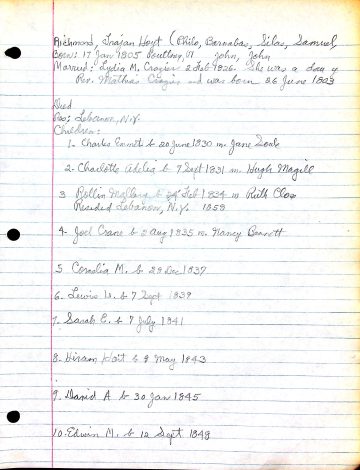 Richmond, Trajan Hoyt (Philo, Barnabas, Silas, Samuel,
Born: 17 Jan 1805 Poultney, Vt John, John
Married: Lydia M. Crazier 2 Feb 1826. She was a dau of
Rev. Mathias Crazier and was born 26 June 1803
Died
Res; Lebanon, N.Y.
Children:
1. Charles Emmet b 20 June 1830 m. Jane Soule
2- Charlotte Adelia b 7 Sept 1831 m. Hugh Magill
3 Rollin Mallory b 24 Feb 1834 m Ruth Close
Resided Lebanon, N.Y. 1858
4- Joel Crane b 2 Aug 1835 m. Nancy Bennett
5 Cornelia M. b 29 Dec 1837
6- Lewis W. b 7 Sept 1839
7- Sarah E. b 7 July 1841
8- Hiram Hoit b 9 May 1843
9. David A b 30 Jan 1845
10- Edwin M. b 12 Sept 1848